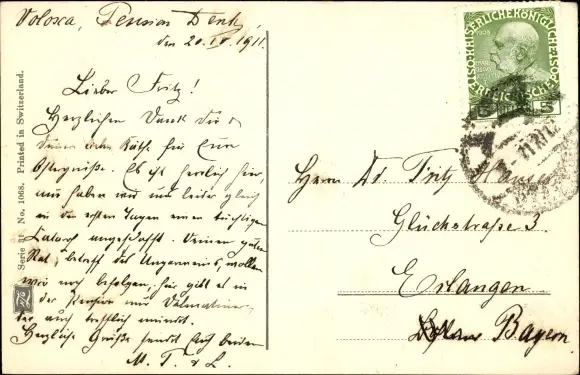 Volosca, Pension Denk,
den 20.IV.1911.
Lieber Fritz!
Herzlichen Dank Dir u
Deiner Käth. für Eure
Ostergrüße. Es ist herrlich hier,
nur haben wir uns leider gleich
in den ersten Tagen einen tüchtigen
Katarrh angeschafft. Deinen guten
Rat, betreff des Ungarweins, wollen
wir noch befolgen, hier gibt es in
der Pension nur Dalmatiner,
der auch trefflich mundet.
Herzliche Grüße sendet Euch beiden
M. T. & L.
Serie 31 No. 1068. Printed in Switzerland.
KAISERLICHE KÖNIGLICHE
ÖSTERREICHISCHE POST
1908
5 5
Herrn Dr. Fritz Hauser
Glückstraße 3
Erlangen
Bayern